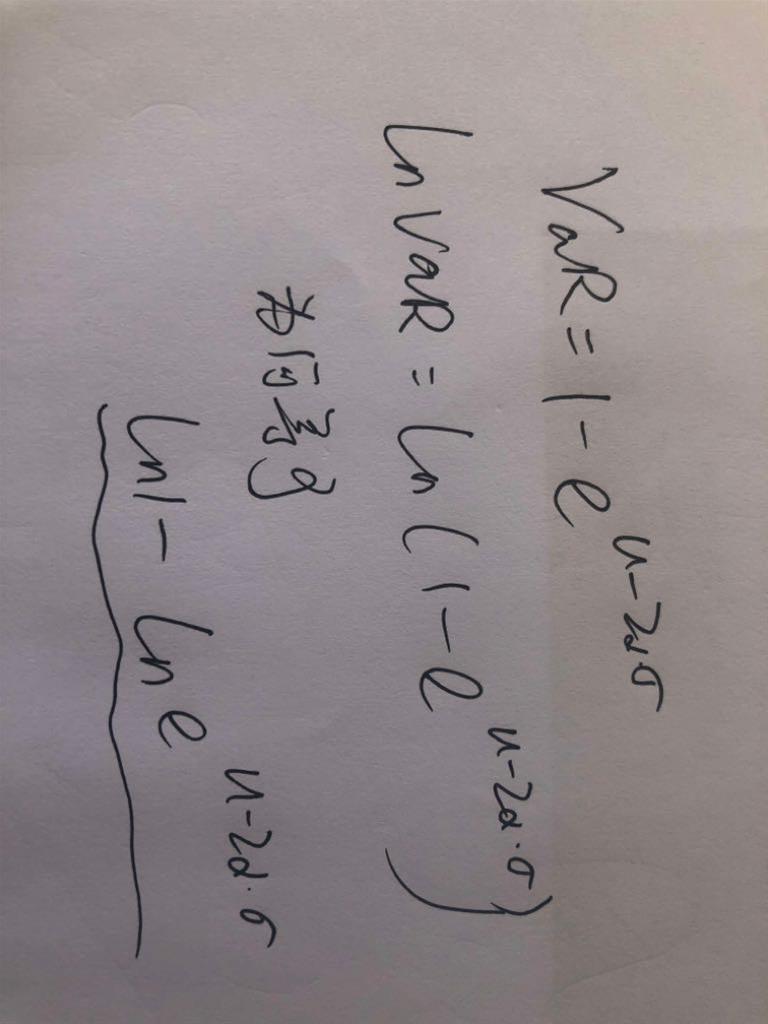 VaR = 1 - e^{u-2α σ}
ln VaR = ln ( 1 - e^{u-2α·σ} )
为何等于
ln1 - ln e^{u-2α·σ}